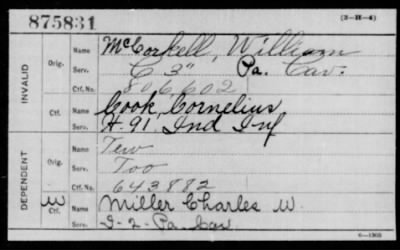 875831 (3-H-4)
INVALID
Orig.
Name McCorkell, William
Serv. C 3" Pa. Cav.
Ctf. No. 806602
Ctf.
Name Cook, Cornelius
Serv. H. 91. Ind Inf
DEPENDENT
Orig.
Name Tew
Serv. Too
Ctf. No. 643882
W Ctf.
Name Miller Charles W.
Serv. I-2-Pa. Cav